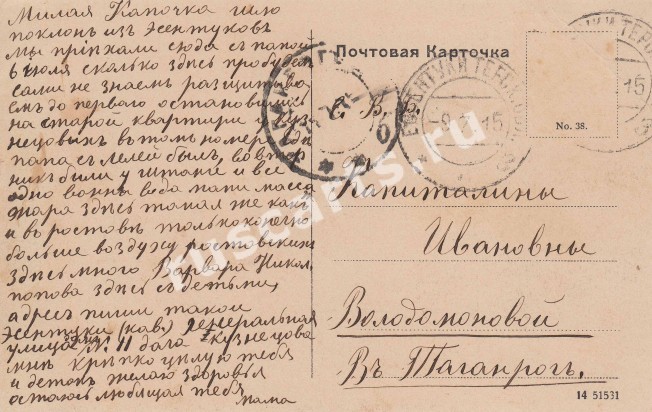 Милая Капочка шлю
поклонъ изъ Эсентуковъ
мы пріѣхали сюда съ папой
6 іюля сколько здѣсь пробудем
сами не знаем разщитыва
ем до перваго остановились
на старой квартири у Куз
нецовыхъ въ томъ номерѣ гдѣ
папа съ Лелей былъ, во втор
никъ были у
одно ванны вода папи масса
жара здѣсь такая же какъ
и въ ростовѣ только конечно
больше воздуху ростовскихъ
здѣсь много Варвара Никол.
попова здѣсь съ детьми,
адрес пиши такой
Эсентуки (кав) Генеральная
улица домъ № 11 дача Кузнецова
крѣпко цилую тебя
и деток желаю здоровья
остаюсь любящая тебя
мама
Почтовая Карточка
No. 38.
Е. В. Б.
Капиталины
Ивановны
Володомоновой
Въ Таганрогъ.
14 51531
ЕССЕНТУКИ ТЕР.
15
ТАГАНРОГЪ
ruscards.ru